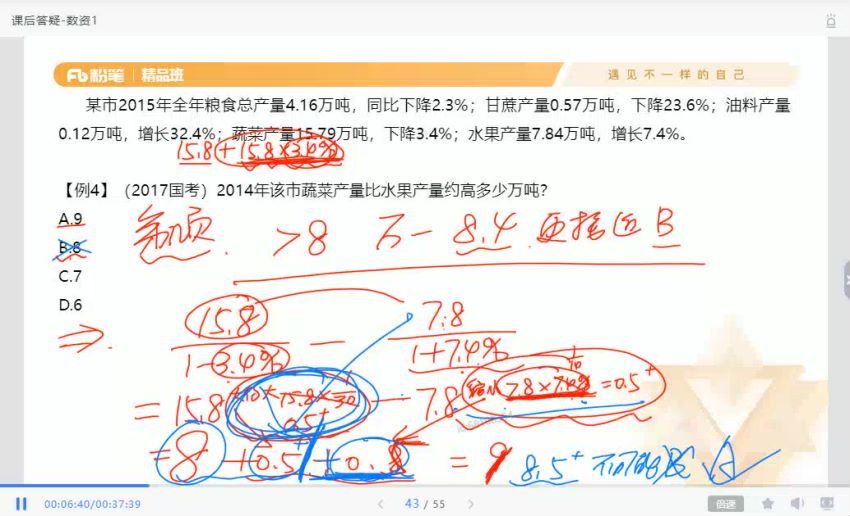 课后答疑-数资1
粉笔 精品班
遇见不一样的自己
某市2015年全年粮食总产量4.16万吨，同比下降2.3%；甘蔗产量0.57万吨，下降23.6%；油料产量
0.12万吨，增长32.4%；蔬菜产量15.79万吨，下降3.4%；水果产量7.84万吨，增长7.4%。
15.8+15.8×3.4%
【例4】（2017国考）2014年该市蔬菜产量比水果产量约高多少万吨？
A.9
B.8
C.7
D.6
>8 万一 8.4 更接近 B
15.8 — 7.8
1-3.4% 1+7.4%
=15.8 15.8× 0.5+ - 7.8 7.8×7.4% =0.5+
=8+0.5+ +0. =9 8.5+
00:06:40/00:37:39
43 / 55
倍速